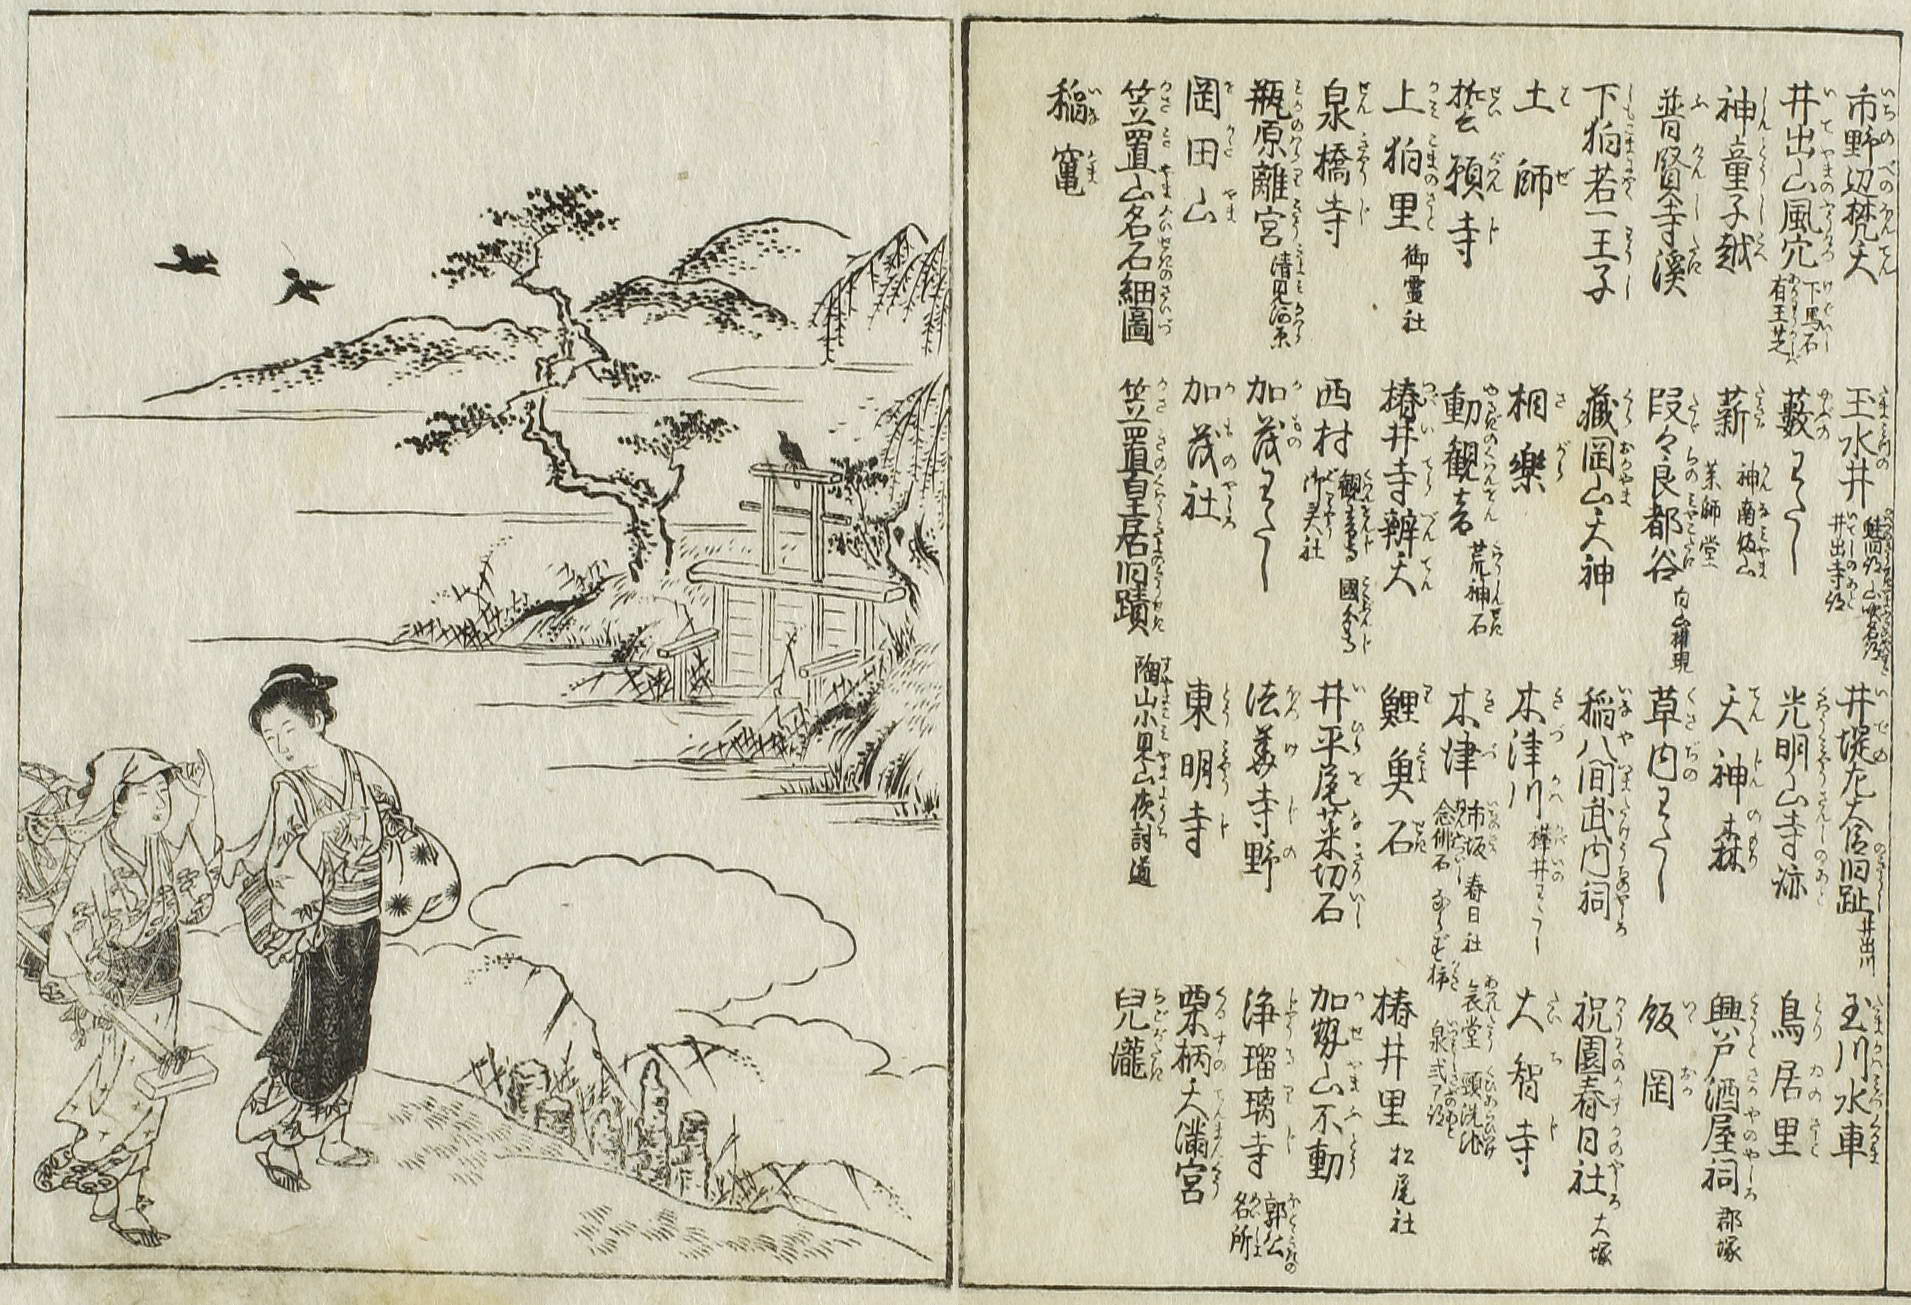 市野辺梵天
玉水井
井堤左大臣旧趾 井出川
玉川水車
井出山風穴 下馬石 有王芝
藪のわたし
光明山寺跡
鳥居里
神童子越
薪 神南備山 薬師堂
天神森
興戸酒屋祠 郡塚
普賢寺溪
段々良都谷 白山権現
草内わたし
飯岡
下狛若一王子
蔵岡山天神
稲八間武内祠
祝園春日社 大塚
土師
相樂
木津川 樺井わたし
大智寺
誓願寺
動観音 荒神石
木津 市坂 念佛石 春日社 哀堂 頸洗池
上狛里 御霊社
椿井寺辨天
鯉魚石
椿井里 松尾社
泉橋寺
西村 観音寺 御美社 國分寺
井平尾菜切石
加勢山不動
瓶原離宮 清見河原
加茂わたし
法華寺野
浄瑠璃寺 郭公名所
岡田山
加茂社
東明寺
栗栖天満宮
笠置山名石細圖
笠置皇居旧蹟 陶山小見山夜討道
兒瀧
稲竃